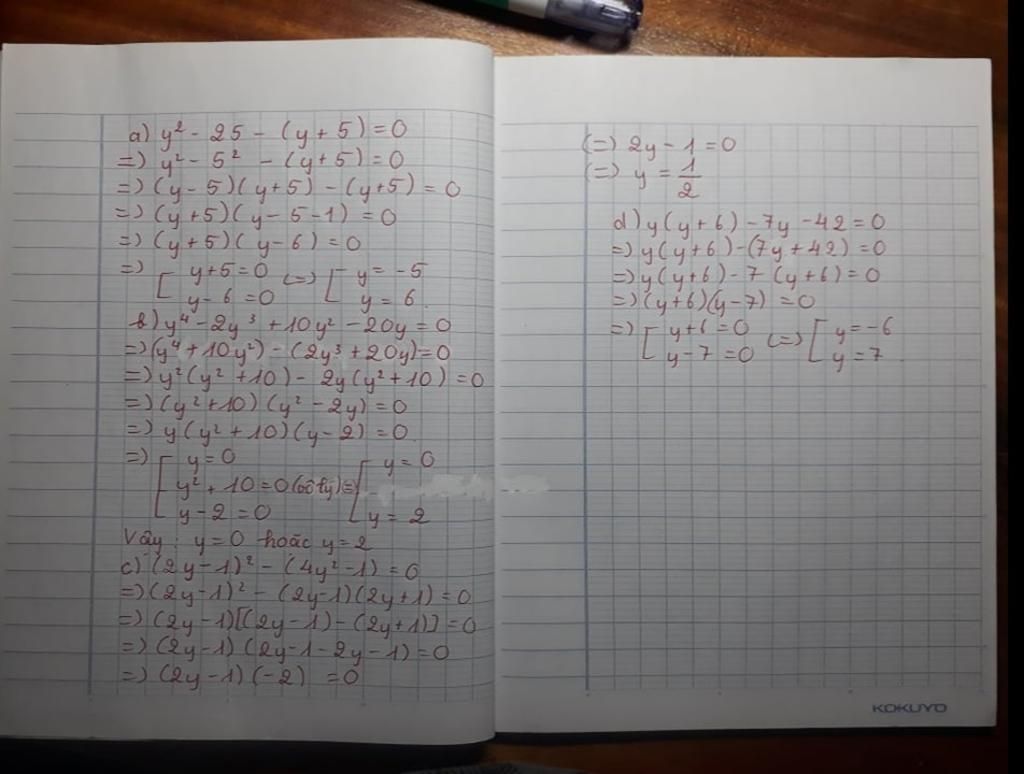 a) y² - 25 - (y + 5) = 0
=) y² - 5² - (y + 5) = 0
=) (y - 5)(y + 5) - (y + 5) = 0
=) (y + 5)(y - 5 - 1) = 0
=) (y + 5)(y - 6) = 0
=) [ y + 5 = 0 (=) [ y = -5
y - 6 = 0 y = 6.
b) y⁴ - 2y³ + 10y² - 20y = 0
=) (y⁴ + 10y²) - (2y³ + 20y) = 0
=) y²(y² + 10) - 2y(y² + 10) = 0
=) (y² + 10)(y² - 2y) = 0
=) y(y² + 10)(y - 2) = 0
=) [ y = 0 [ y = 0
y² + 10 = 0 (vô lý) =)
y - 2 = 0 y = 2
Vậy y = 0 hoặc y = 2
c) (2y - 1)² - (4y² - 1) = 0
=) (2y - 1)² - (2y - 1)(2y + 1) = 0
=) (2y - 1)[(2y - 1) - (2y + 1)] = 0
=) (2y - 1)(2y - 1 - 2y - 1) = 0
=) (2y - 1)(-2) = 0
(=) 2y - 1 = 0
(=) y = 1/2
d) y(y + 6) - 7y - 42 = 0
=) y(y + 6) - (7y + 42) = 0
=) y(y + 6) - 7(y + 6) = 0
=) (y + 6)(y - 7) = 0
=) [ y + 6 = 0 (=) [ y = -6
y - 7 = 0 y = 7
KOKUYO